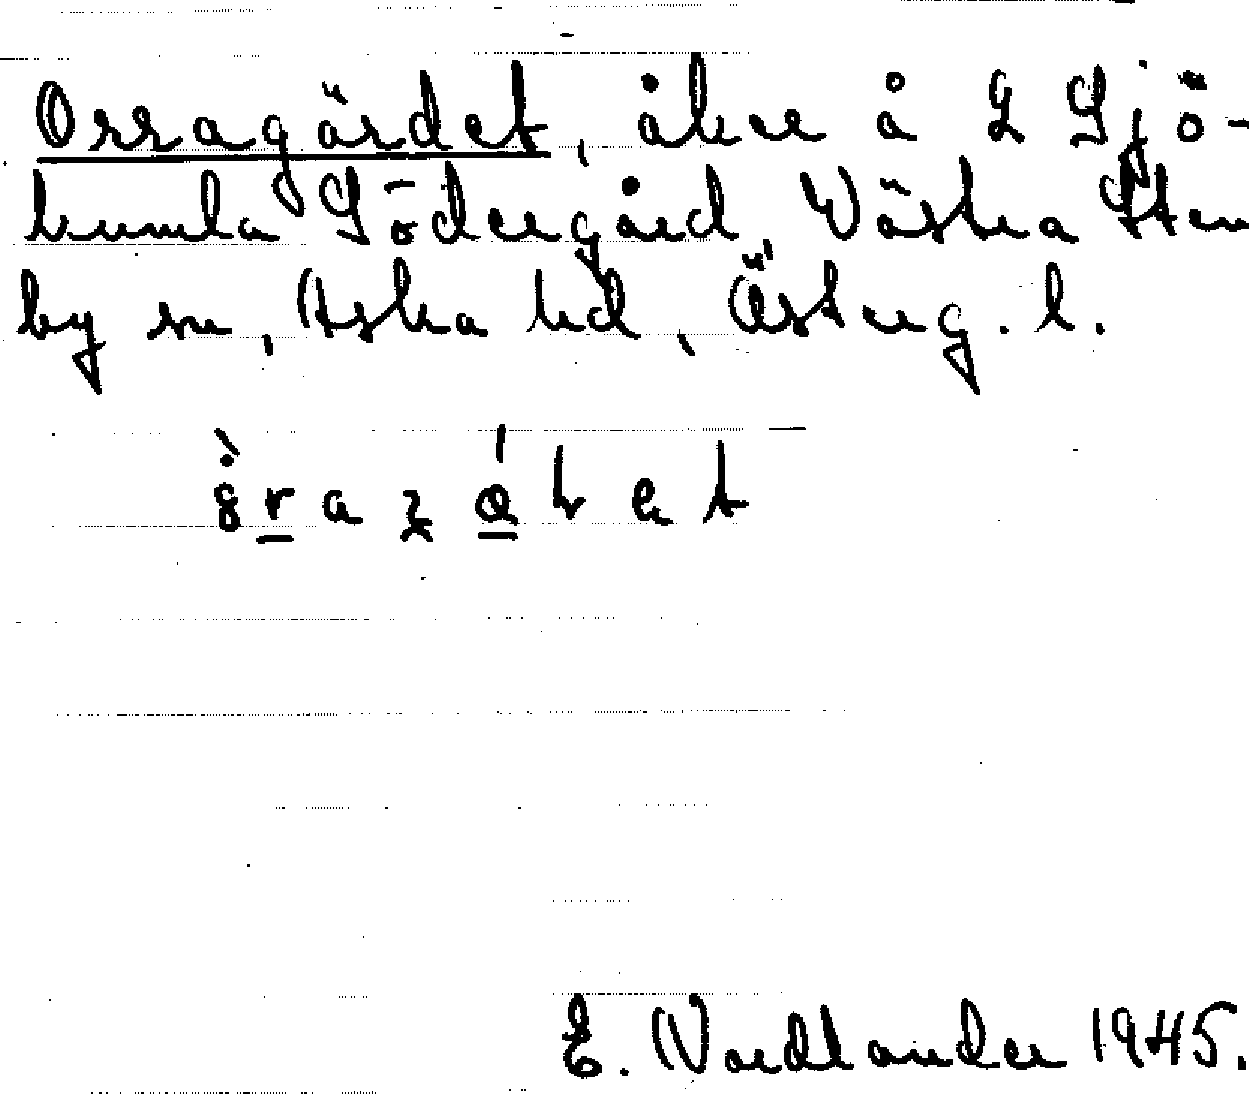 Orragärdet, åker å L Sjö-
kumla Södergård Västra Sten
by sn, Aska hd, Österg. l.
E. Nordlander 1945.